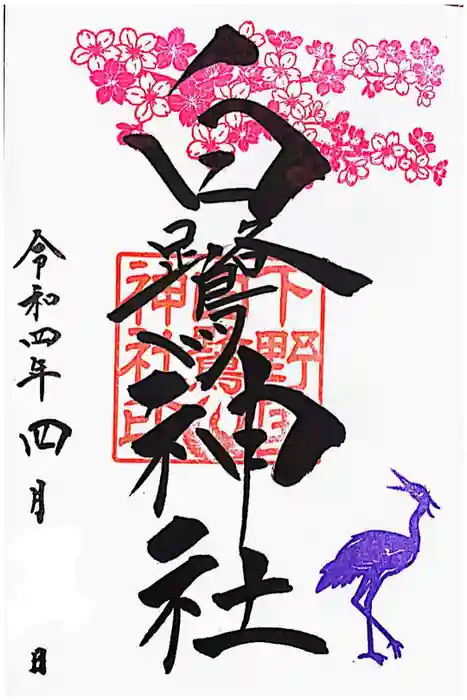 白鷺神社
令和四年四月 日
下野国
白鷺
神社印